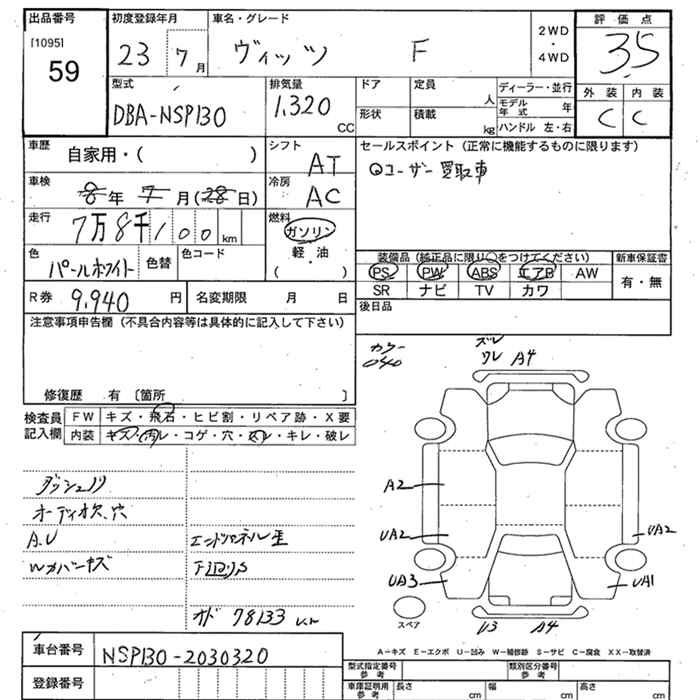 出品番号 初度登録年月 車名・グレード 2WD・4WD 評価点
[1095]
59 23 7月 ヴィッツ F 3.5
型式 排気量 ドア 定員 人 ディーラー・並行 外装 内装
DBA-NSP130 1,320 CC 形状 積載 kg モデル年式 年 C C
ハンドル 左・右
車歴 自家用・( ) シフト AT セールスポイント (正常に機能するものに限ります)
車検 8年 7月(28日) 冷房 AC ユーザー買取車
走行 7万8千100km 燃料 ガソリン
軽・油
( )
色 パールホワイト 色替 色コード 装備品 (純正品に限り○をつけてください) 新車保証書
PS PW ABS エアB AW 有・無
SR ナビ TV カワ
R券 9,940円 名変期限 月 日 後日品
注意事項申告欄 (不具合内容等は具体的に記入して下さい)
カラー
040
ズレ
ワレ A4
修復歴 有 〔箇所 〕
検査員記入欄 FW キズ・飛石・ヒビ割・リペア跡・X要
内装 キズ・汚レ・コゲ・穴・スレ・キレ・破レ
オーディオ欠、穴
A.U
エンドパネル歪
オド 78133
A2
UA2 UA2
UA3 UA1
スペア
U3 A4
A-キズ E-エクボ U-凹み W-補修跡 S-サビ C-腐食 XX-取替済
車台番号 NSP130-2030320
登録番号
型式指定番号 参考 類別区分番号 参考
車庫証明用 参考 長さ cm 幅 cm 高さ cm